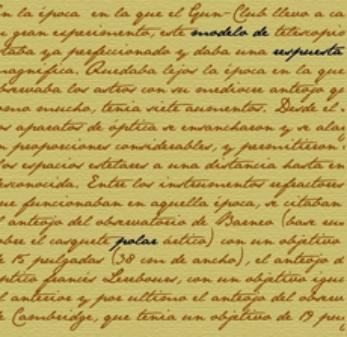 n la época en la que el Gun-Club llevo a ca
u gran experimento, este modelo de telescopio
taba ya perfeccionado y daba una respuesta
magnífica. Quedaba lejos la época en la que
bservaba los astros con su mediocre anteojo qe
omo mucho, tenía siete aumentos. Desde el
os aparatos de óptica se ensancharon y se alar
n proporciones considerables, y permitieron
los espacios estelares a una distancia hasta en
esconocida. Entre los instrumentos refractores
ue funcionaban en aquella época, se citaban
l anteojo del observatorio de Barneo (base rus
obre el casquete polar ártico) con un objetivo
e 15 pulgadas (38 cm de ancho), el anteojo d
óptico francés Lerebours, con un objetivo igua
l anterior y por ultimo el anteojo del observ
e Cambridge, que tenía un objetivo de 19 pul